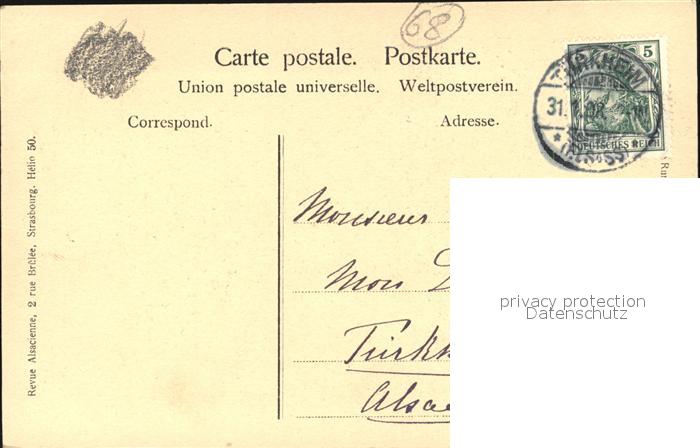 68
Carte postale. Postkarte.
Union postale universelle. Weltpostverein.
Correspond. Adresse.
5
DEUTSCHES REICH
TÜRKHEIM
31.
(ELSASS)
Revue Alsacienne, 2 rue Brûlée, Strasbourg. Hélio 50.
Monsieur
Mon
Türkh
Alsa
privacy protection
Datenschutz